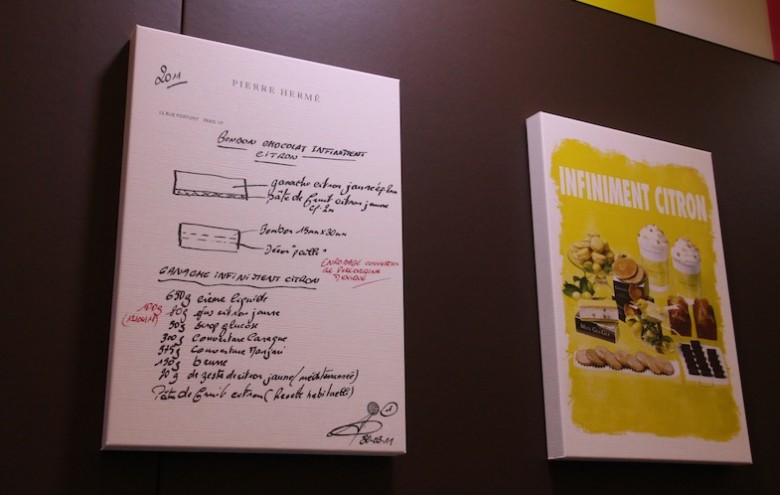 2011
PIERRE HERMÉ
BONBON CHOCOLAT INFINIMENT
CITRON
ganache citron jaune ép
Pâte de fruit citron jaune
ép.
Bonbon 15mm x 30mm
Décor
ENROBAGE COUVERTURE
GANACHE INFINIMENT CITRON
650g crème liquide
100g
80g jus citron jaune
50g sirop glucose
300g Couverture Caraque
375g Couverture Manjari
150g beurre
20g de zeste de citron jaune (méditerranée)
Pâte de fruit citron (Recette habituelle)
30-03-11
INFINIMENT CITRON